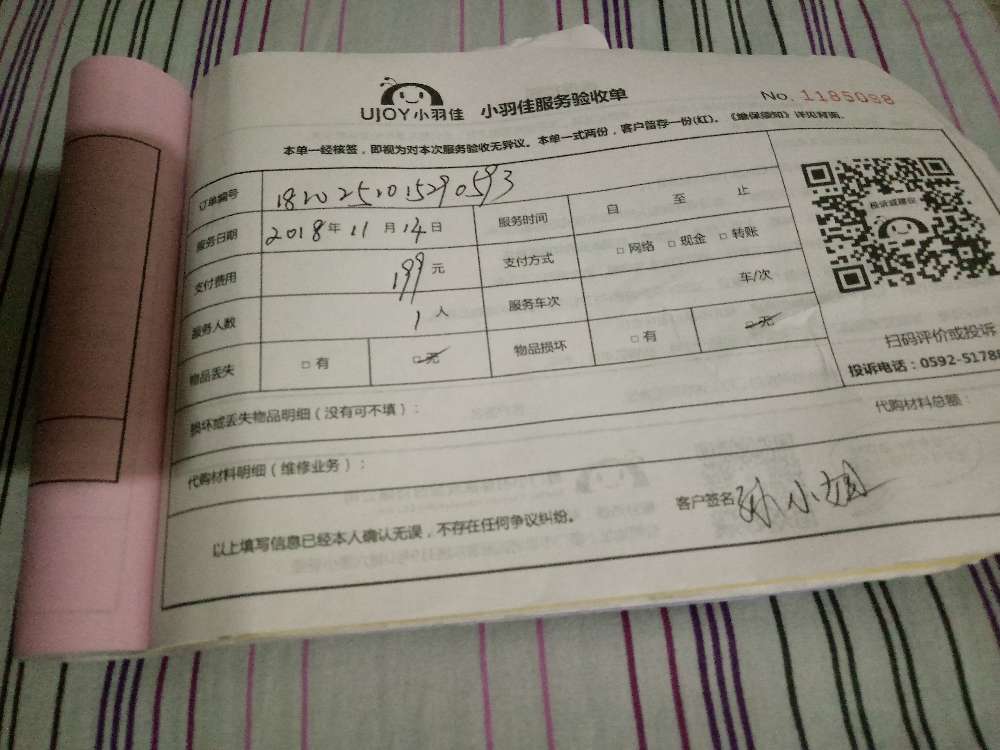 UJOY小羽佳 小羽佳服务验收单 No. 1185088
本单一经核签，即视为对本次服务验收无异议。本单一式两份，客户留存一份(红)。《维保须知》详见背面。
订单编号 1820252015290593
服务日期 2018年 11月 14日 服务时间 自 至 止
支付费用 199元 支付方式 □网络 □现金 □转账
服务人数 1人 服务车次 车/次
物品丢失 □有 □无 物品损坏 □有 □无
投诉或建议
扫码评价或投诉
投诉电话：0592-5178
损坏或丢失物品明细（没有可不填）：
代购材料明细（维修业务）： 代购材料总额：
以上填写信息已经本人确认无误，不存在任何争议纠纷。 客户签名 孙小姐